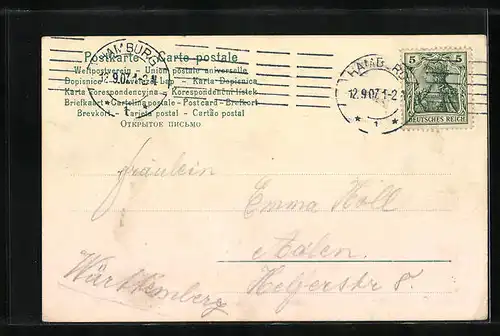 Postkarte - Carte postale
Weltpostverein - Union postale universelle
Dopisnice - Levelező-Lap - Karta Dopisnica
Karta Korespondencyjna - Korespondenční lístek
Briefkaart - Cartolina postale - Postcard - Brefkort
Brevkort - Tarjeta postal - Cartão postal
ОТКРЫТОЕ ПИСЬМО
HAMBURG
12.9.07.1-2 N
1
HAMBURG
12.9.07.1-2
1
5 5
DEUTSCHES REICH
Fräulein
Emma Holl
Aalen.
Württemberg
Helferstr 8.